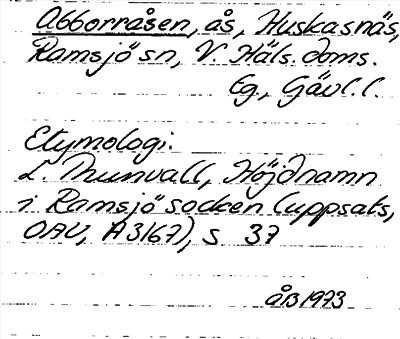 Abborråsen, ås, Huskasnäs,
Ramsjö sn, V. Häls. doms.
Eg., Gävl. l.
Etymologi.
L. Thunvall, Höjdnamn
i Ramsjö socken (uppsats,
OAU, A3167), s 37
åB 1973